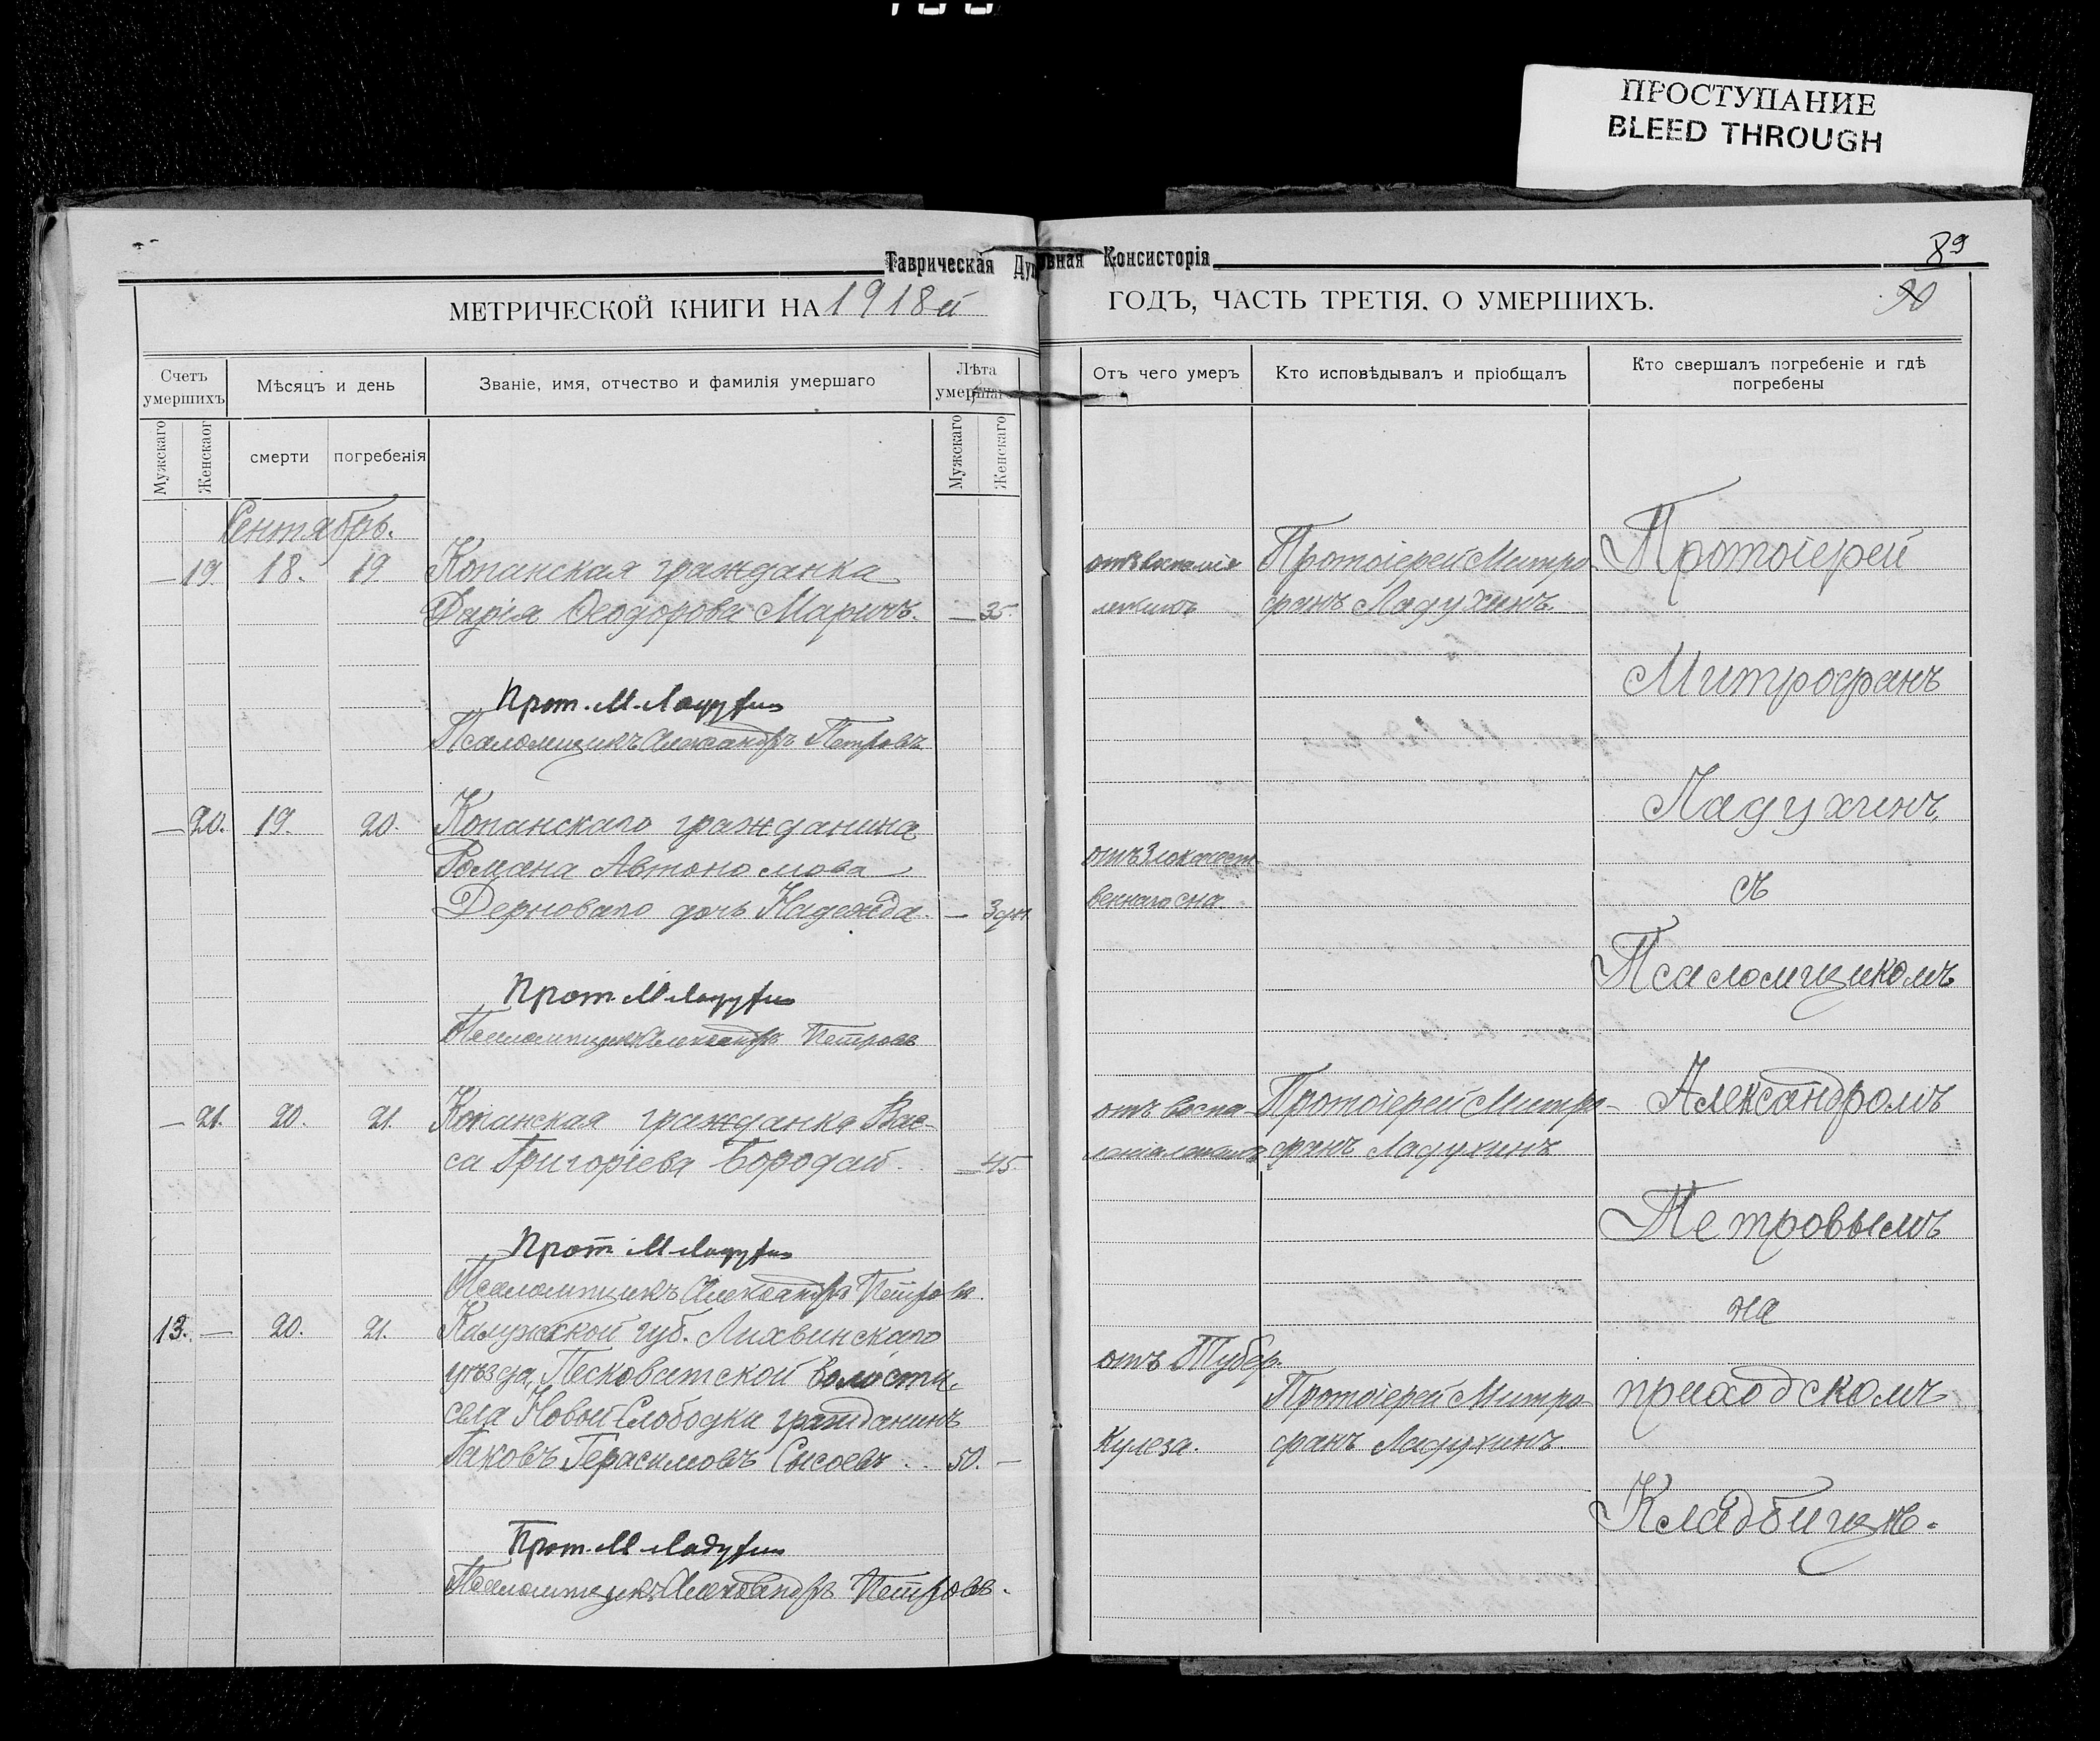 ПРОСТУПАНИЕ
BLEED THROUGH
Таврическая Духовная Консисторія
89
90
МЕТРИЧЕСКОЙ КНИГИ НА 1918й ГОДЪ, ЧАСТЬ ТРЕТІЯ. О УМЕРШИХЪ.
Счетъ умершихъ
Мѣсяцъ и день
Званіе, имя, отчество и фамилія умершаго
Лѣта умершаго
Мужскаго
Женскаог
смерти
погребенія
Мужскаго
Женскаго
Отъ чего умеръ
Кто исповѣдывалъ и пріобщалъ
Кто свершалъ погребеніе и гдѣ
погребены
Сентябрь.
— 19. 18. 19 Копанская гражданка
Дарія Ѳеодорова Маричъ. — 35.
Прот. М. Ладухин
Псаломщикъ Александръ Петровъ
— 20. 19. 20. Копанскаго гражданина
Романа Автономова
Дерноваго дочь Надежда. — 3 дн.
Прот М Ладухин
Псаломщикъ Александръ Петровъ
— 21. 20. 21. Копанская гражданка Вас-
са Григоріева Бородай. — 45
Прот М Ладухин
Псаломщикъ Александръ Петровъ.
13. — 20. 21. Калужской губ. Лихвинскаго
уѣзда, Песковатской волости,
села Новой-Слободки гражданинъ
Іаковъ Герасимовъ Сысоевъ . . 50. —
Прот. М Ладухин
Псаломщикъ Александръ Петровъ.
отъ воспаленія
легкихъ
Протоіерей Митро-
фанъ Ладухинъ.
отъ Злокачест-
веннаго сна.
отъ воспа-
ленія легкихъ
Протоіерей Митро-
фанъ Ладухинъ
отъ Тубер-
кулеза.
Протоіерей Митро-
фанъ Ладухинъ.
Протоіерей
Митрофанъ
Ладухинъ,
съ
Псаломщикомъ
Александромъ
Петровымъ
на
приходскомъ
Кладбищѣ.